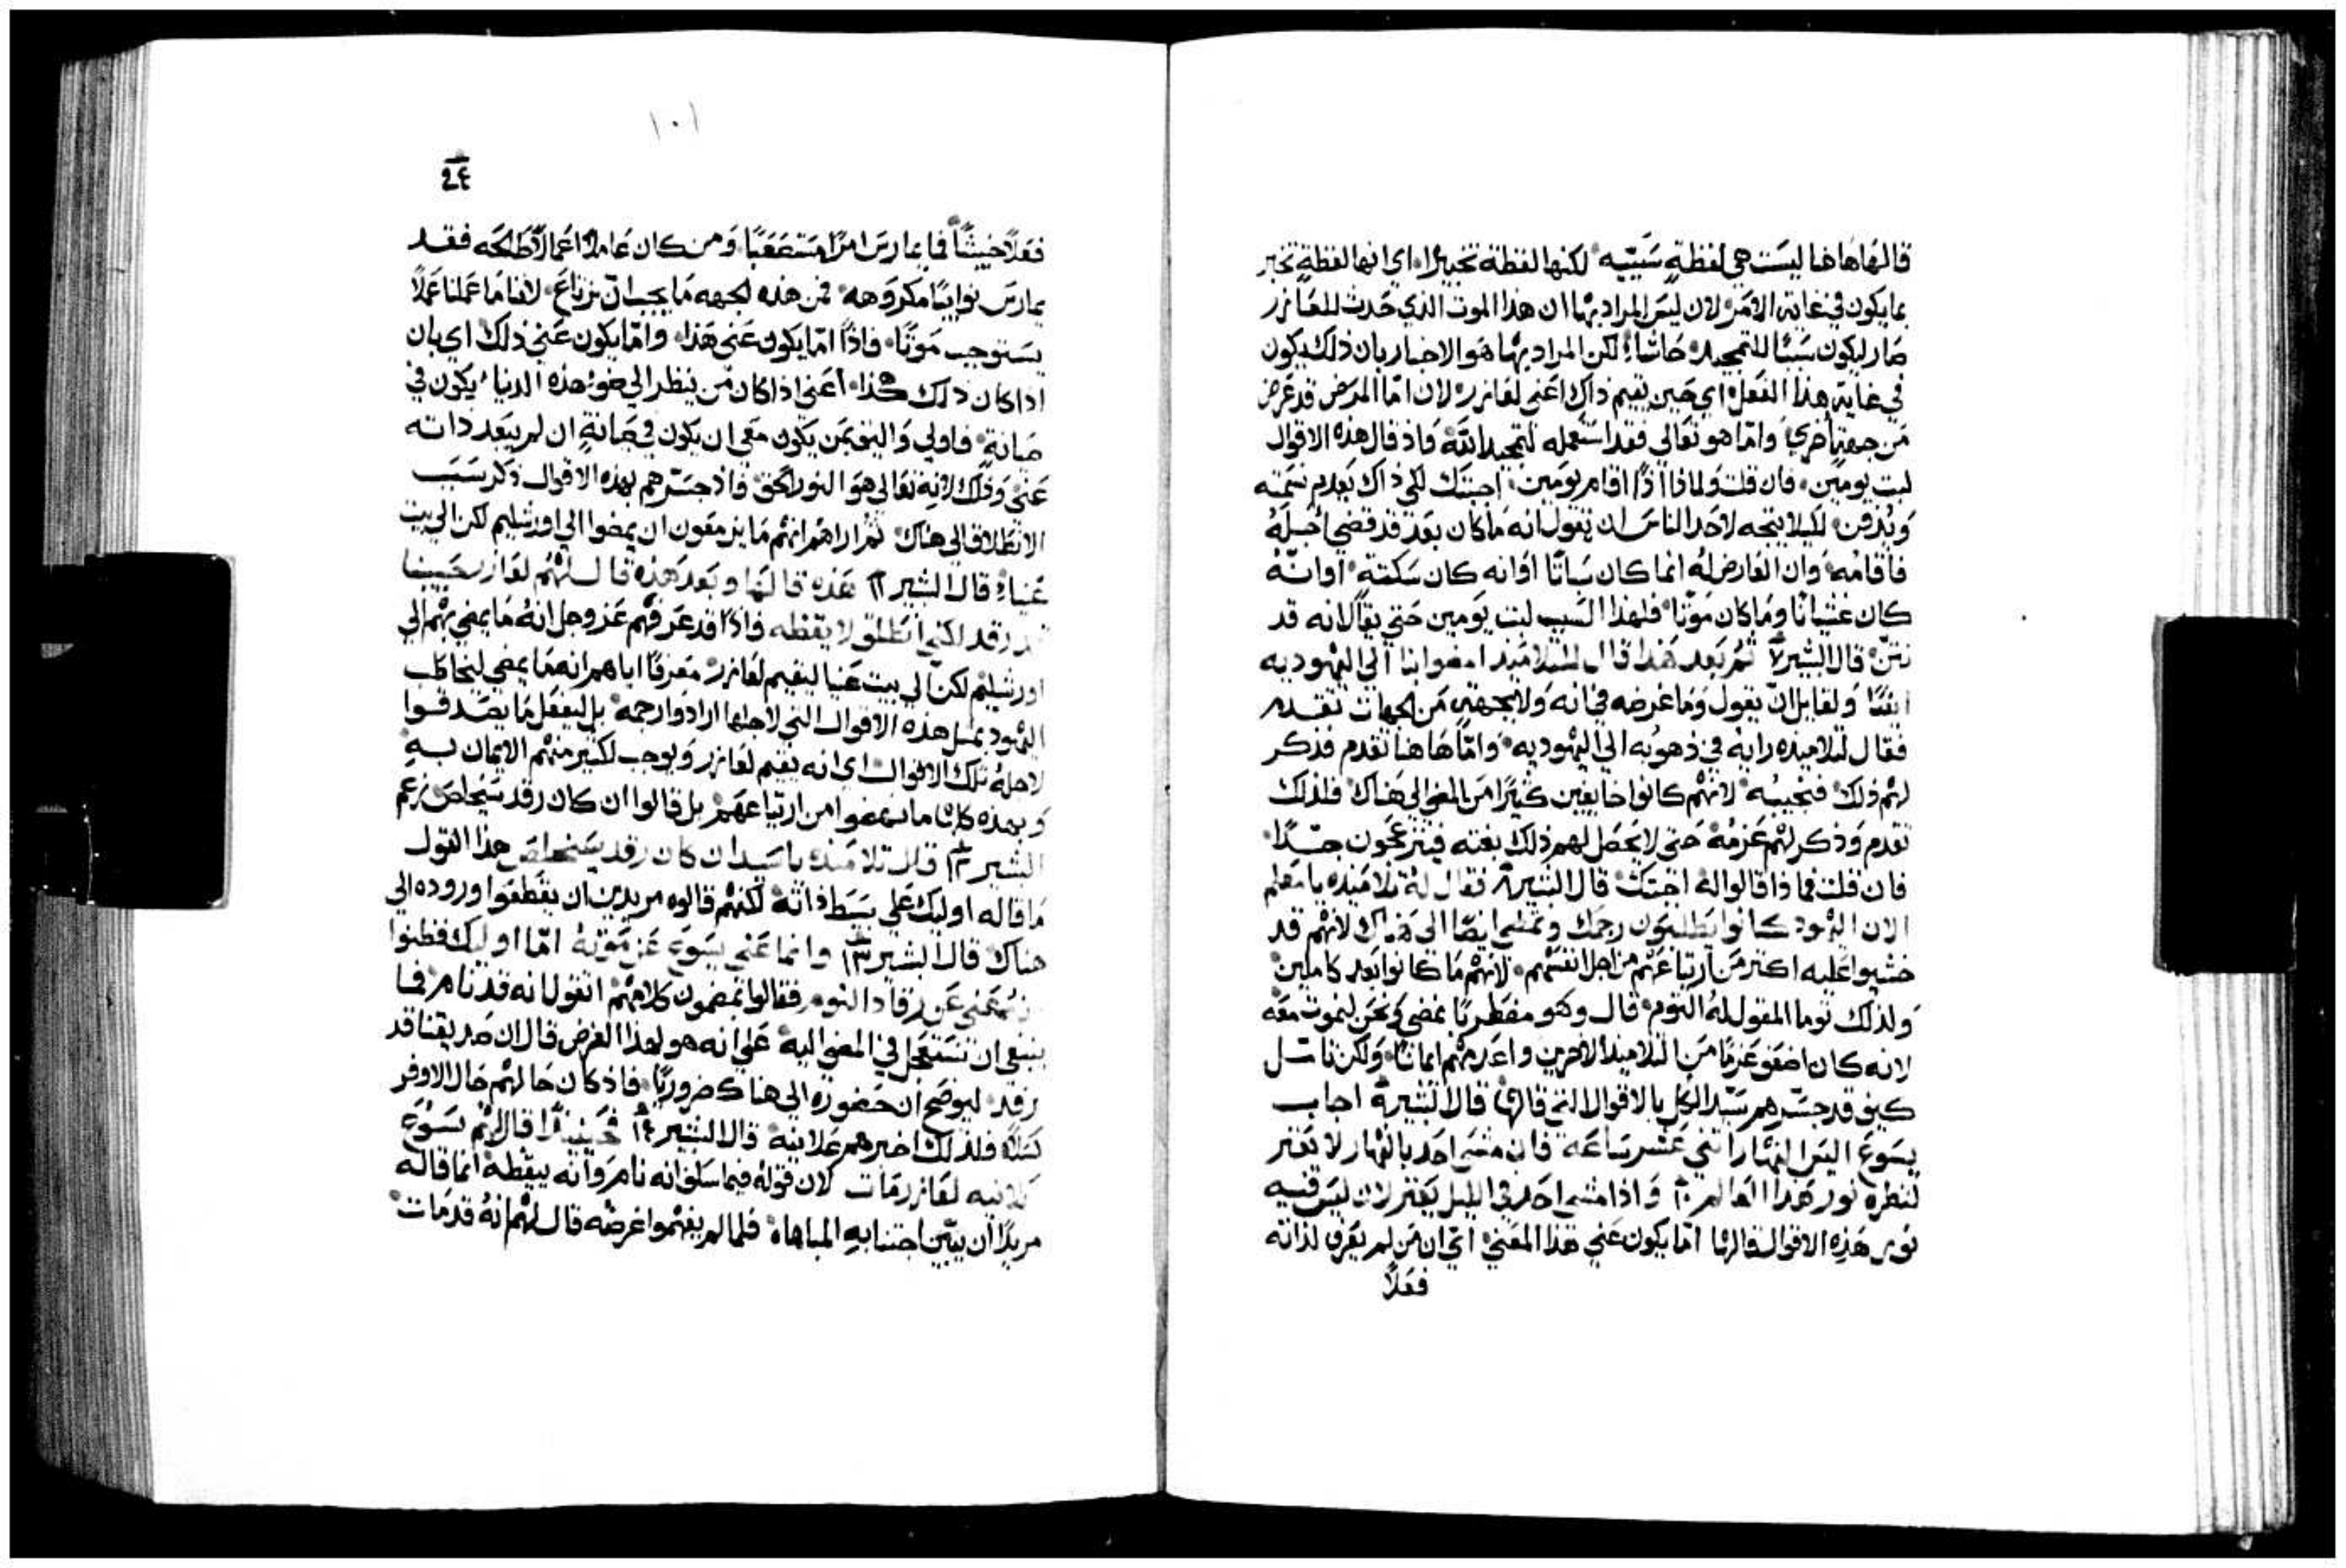 قالها هاهنا ليست هي لفظةٍ سَبَبيّه، لكنها لفظة تخبيرًا، اي انها لفظةٍ تخبر
بما يكون في غاية الامر، لان ليسَ المراد بها ان هذا الموت الذي حَدث للعَازر
صَار ليكون سَببًا للتمجيد، حَاشا، لكن المراد بها هوَ الاخبار بان ذلك يكون
في غاية هذا الفعل، اي حَين يقيم ذاك اعني لعَازر، لان امّا المرَض قد عَرض
مَن جهةٍ اخري، وامّا هو تعَالي فقد استَعمله لتمجيد الله، فاذ قال هذه الاقوال
لبت يومَين، فان قلت ولماذا اذًا اقام يومَين، اجبتك لكي ذاك يعَدم نسَمته
ويُدفن، لكيلا يتجه لاحَد الناسَ ان يقول انه مَا كان بعَد قد قضي اجَلهُ
فاقامُه، وان العَارض لهُ انما كان سَباتًا اوَ انه كان سَكتة، اوانهُ
كان غشيانًا ومَا كان مَوتًا، فلهذا السَبب لبت يَومين حَتي يقال انه قد
نتنَ، قال البشير ثمُ بَعد هَذا قال للتلاميَذ امضوا بنا الي اليهوديه
ايضًا وَلقايل ان يقول وَمَا غرضه في انه وَلا بجهةٍ مَن الجهات تقدم
فقال لتلاميذه رايهُ في ذهوبُه الي اليهوديه، وَامّا هَاهنا تقدم فذكر
لهم ذلك، فنجيبُه، لانهُم كانوا خايفين كثيرًا مَن المضي الي هَناك، فلذلك
تقدم وَذكر لهُم عَزمُه، حَتي لا يحَصَل لهم ذلك بغته فينزعجَون جدًا،
فان قلت فما ذا قالوا لهُ اجبتك، قال البشير فقال لهُ تلاميَذه يا معَلم
الان اليهُود كانوا يَطلبَون رجمك وتمضي ايضًا الي هَناك لانهُم قد
خشيوا عَليه اكثر مَن ارتياعَهُم مَن اجل انفسَهُم، لانهُم مَا كانوا بعَد كاملين
وَلذلك توما المقول لهُ التوم، قال وهَو مضطربًا نمضي كي نحَن لنموت معَه
لانه كان اضعَف عَزمًا مَن التلاميذ الاخرين واعَدمهُم ايمانًا، وَلكن تامَل
كيف قد جسَرهم سَيّد الكل بالاقوال التي قالها، قال البشير اجاب
يسَوعَ اليسَ النهَار اثني عَشر سَاعَة فان مشي احَد بالنهَار لا يَعثر
لنظره نور هَذا العَالم وَاذا مشي احَد في الليل يَعثر لان ليسَ فيه
نَور هَذه الاقوال قالها امّا يكون عَني هَذا المعَني، ايّ ان مَن لم يعَرف لذاته
فعَلاً
١٠١
فعَلاً خبيثًا فما يمارسَ امرًا مستَصعَبًا، وَمن كان عَاملاً اعَمالاً طالحَه فقد
يمارسَ نوايبًا مكروَهه، فمن هذه الجهه مَا يجب ان نرتاعَ، لاننا مَا عَملنا عَملاً
يسَتوجب مَوتًا، فاذًا امّا يكون عَني هَذا، وامّا يكون عَني ذلك، اي بان
اذا كان ذلك هكذا، اعَني اذا كان مَن ينظر الي ضوء هذه الدنيا، يكون في
صَيانةٍ، فاولي وَاليق بمَن يكون معَي ان يكون في صَيانةٍ ان لم يبعَد ذاته
عَني، وَذلك لانه تعَالي هوَ النور الحَق، فاذ جسَرهم بهذه الاقوال ذكر سَبَب
الانطلاق الي هناك، ثم اراهُم انهُم مَا يزمعَون ان يمضوا الي اورشليم لكن الي بيت
عَنيا، قال البشير هَذه قالهَا وَبعَد هَذه قال لهُم لعَازر حَبيبنا
قد رَقد لكني انطلق لايقظه فاذًا قد عَرفهُم عَز وجل انهُ مَا يمضي بهُم الي
اورشليم لكن الي بيت عَنيا ليقيم لعَازر، معَرفًا اياهم انه مَا يمضي ليخاطب
اليهُود بمثل هذه الاقوال التي لاجلها ارادوا رجمهُ، بل ليفعَل مَا يصَدقوا
لاجلهُ تلك الاقوال، اي انه يقيم لعَازر وَيوجب لكثير منهُم الايمان بهِ
وَبهذه كلها ما نهضوا من ارتياعَهم، بل قالوا ان كان رقد سَيُخلصَ، زعَم
البشير قال تلاميذه يا سَيد ان كان رقد سَيخلصَ هذا القول
مَا قاله اوليك عَلي بسَيط ذاته، لكنهُم قالوه مريدين ان يقطعَوا وروده الي
هناك، قال البشير وانما عَني يسَوعَ عَن مَوته امّا اوليك فظنوا
انهُ عَني عَن رقاد النوم فقالوا بمضمون كلامهُم، اتقول انه قد نام، فما
ينبغي ان تسَتعَجل في المضي اليه، عَلي انه هو لهذا الغرض قال ان صَديقنا قد
رقد، ليوضح ان حَضوره الي هناك ضروريًا، فاذ كان حَالهُم حَال الاوفر
كسَلاً، فلذلك اخبرهم عَلانية، قال البشير فحَينيذًا قال لهُم يسَوُعَ
عَلانيه لعَازر مَات لان قولهُ فيما سَلف انه نام وَانه ييقظهُ، انما قالهُ
مريدًا ان يبيّن اجتنابه المباهاه، فلما لم يفهُموا غرضُه قال لهُم انهُ قد مَات،